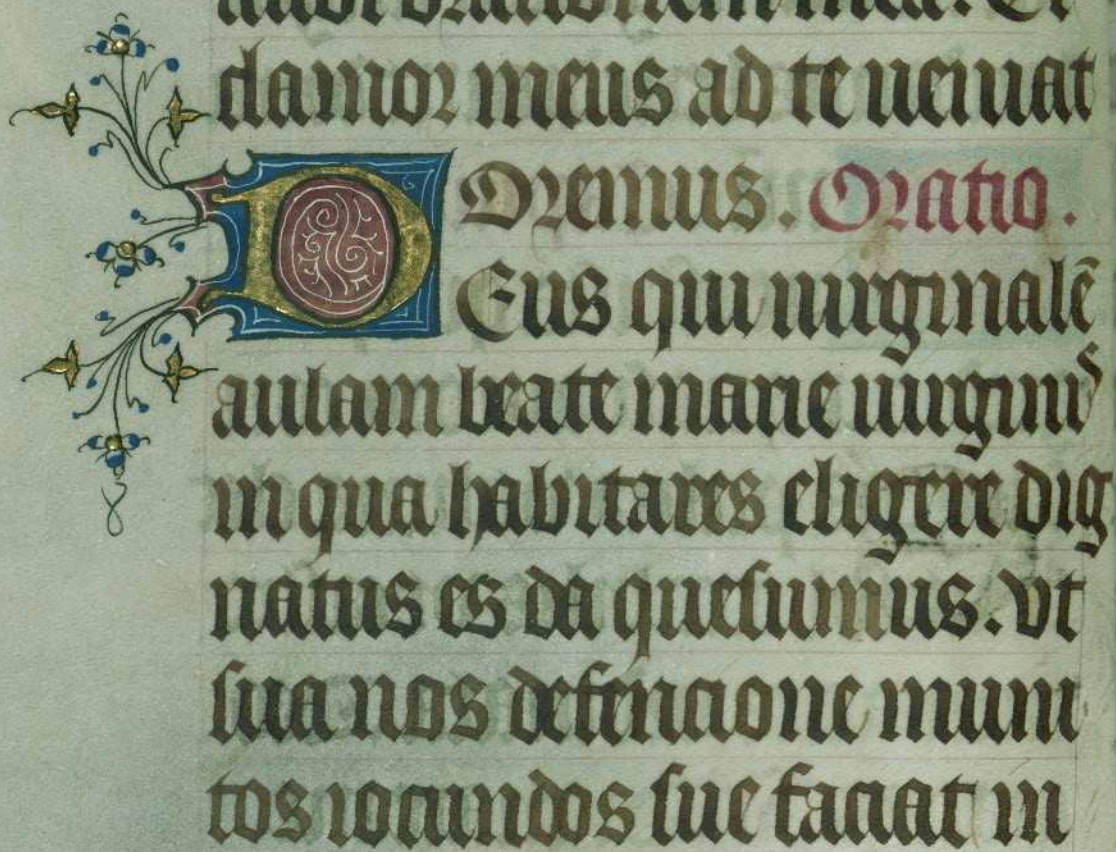 audi orationem mea. Et
clamor meus ad te ueniat
Oremus. Oratio.
DEus qui uirginalē
aulam beate marie uirginis
in qua habitares eligere dig
natus es da quesumus. vt
sua nos defencione muni
tos iocundos sue faciat in